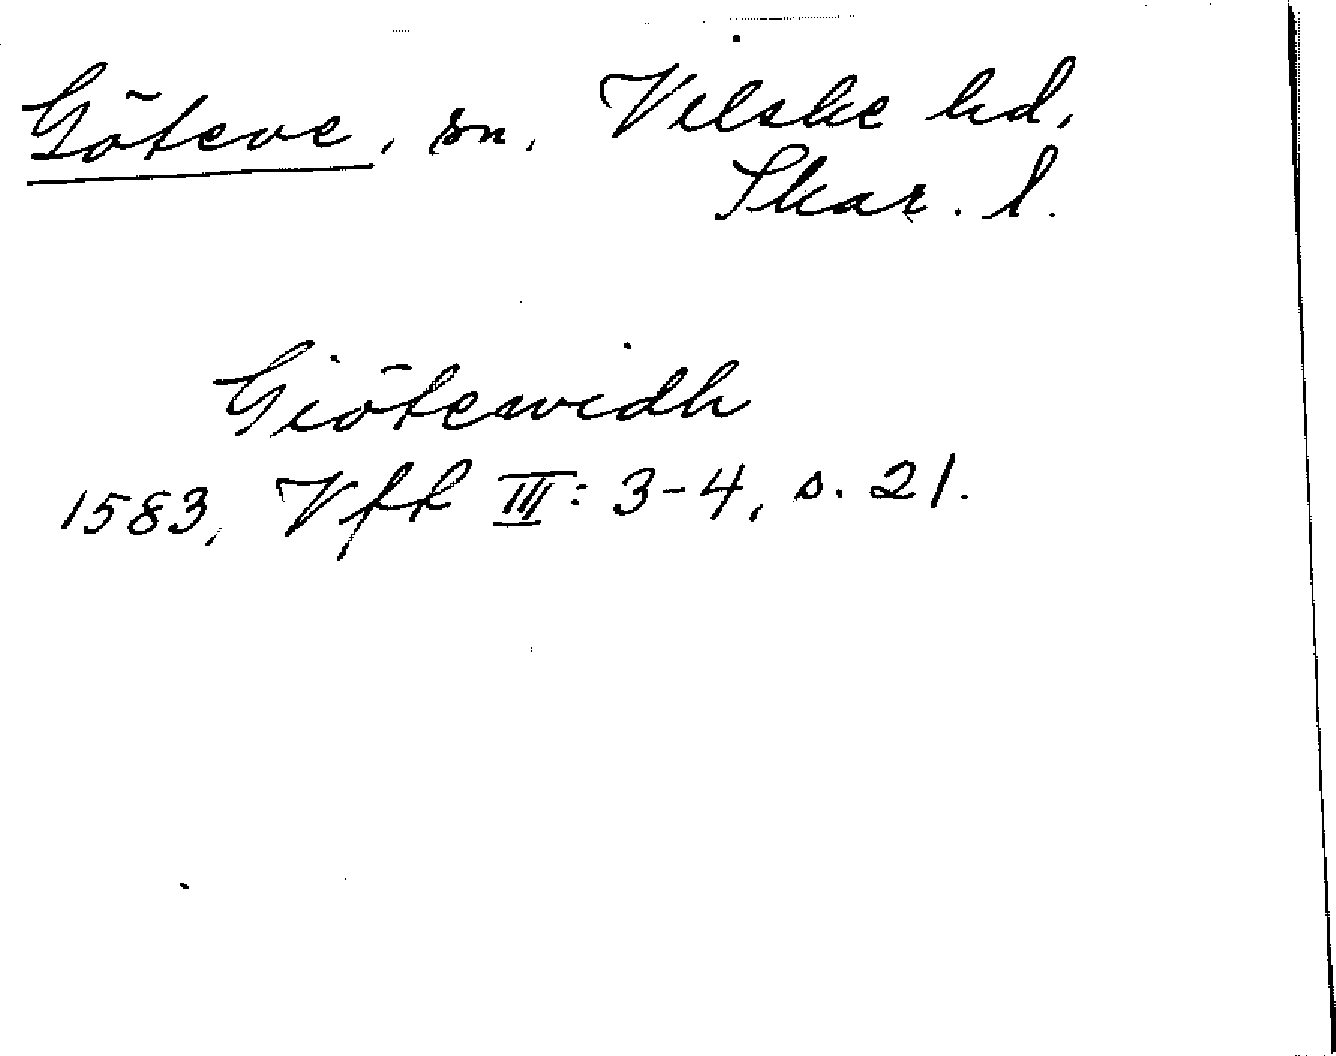 Göteve, sn, Vilske hd,
Skar. l.
Giötewidh
1583, Vft III: 3-4, s. 21.